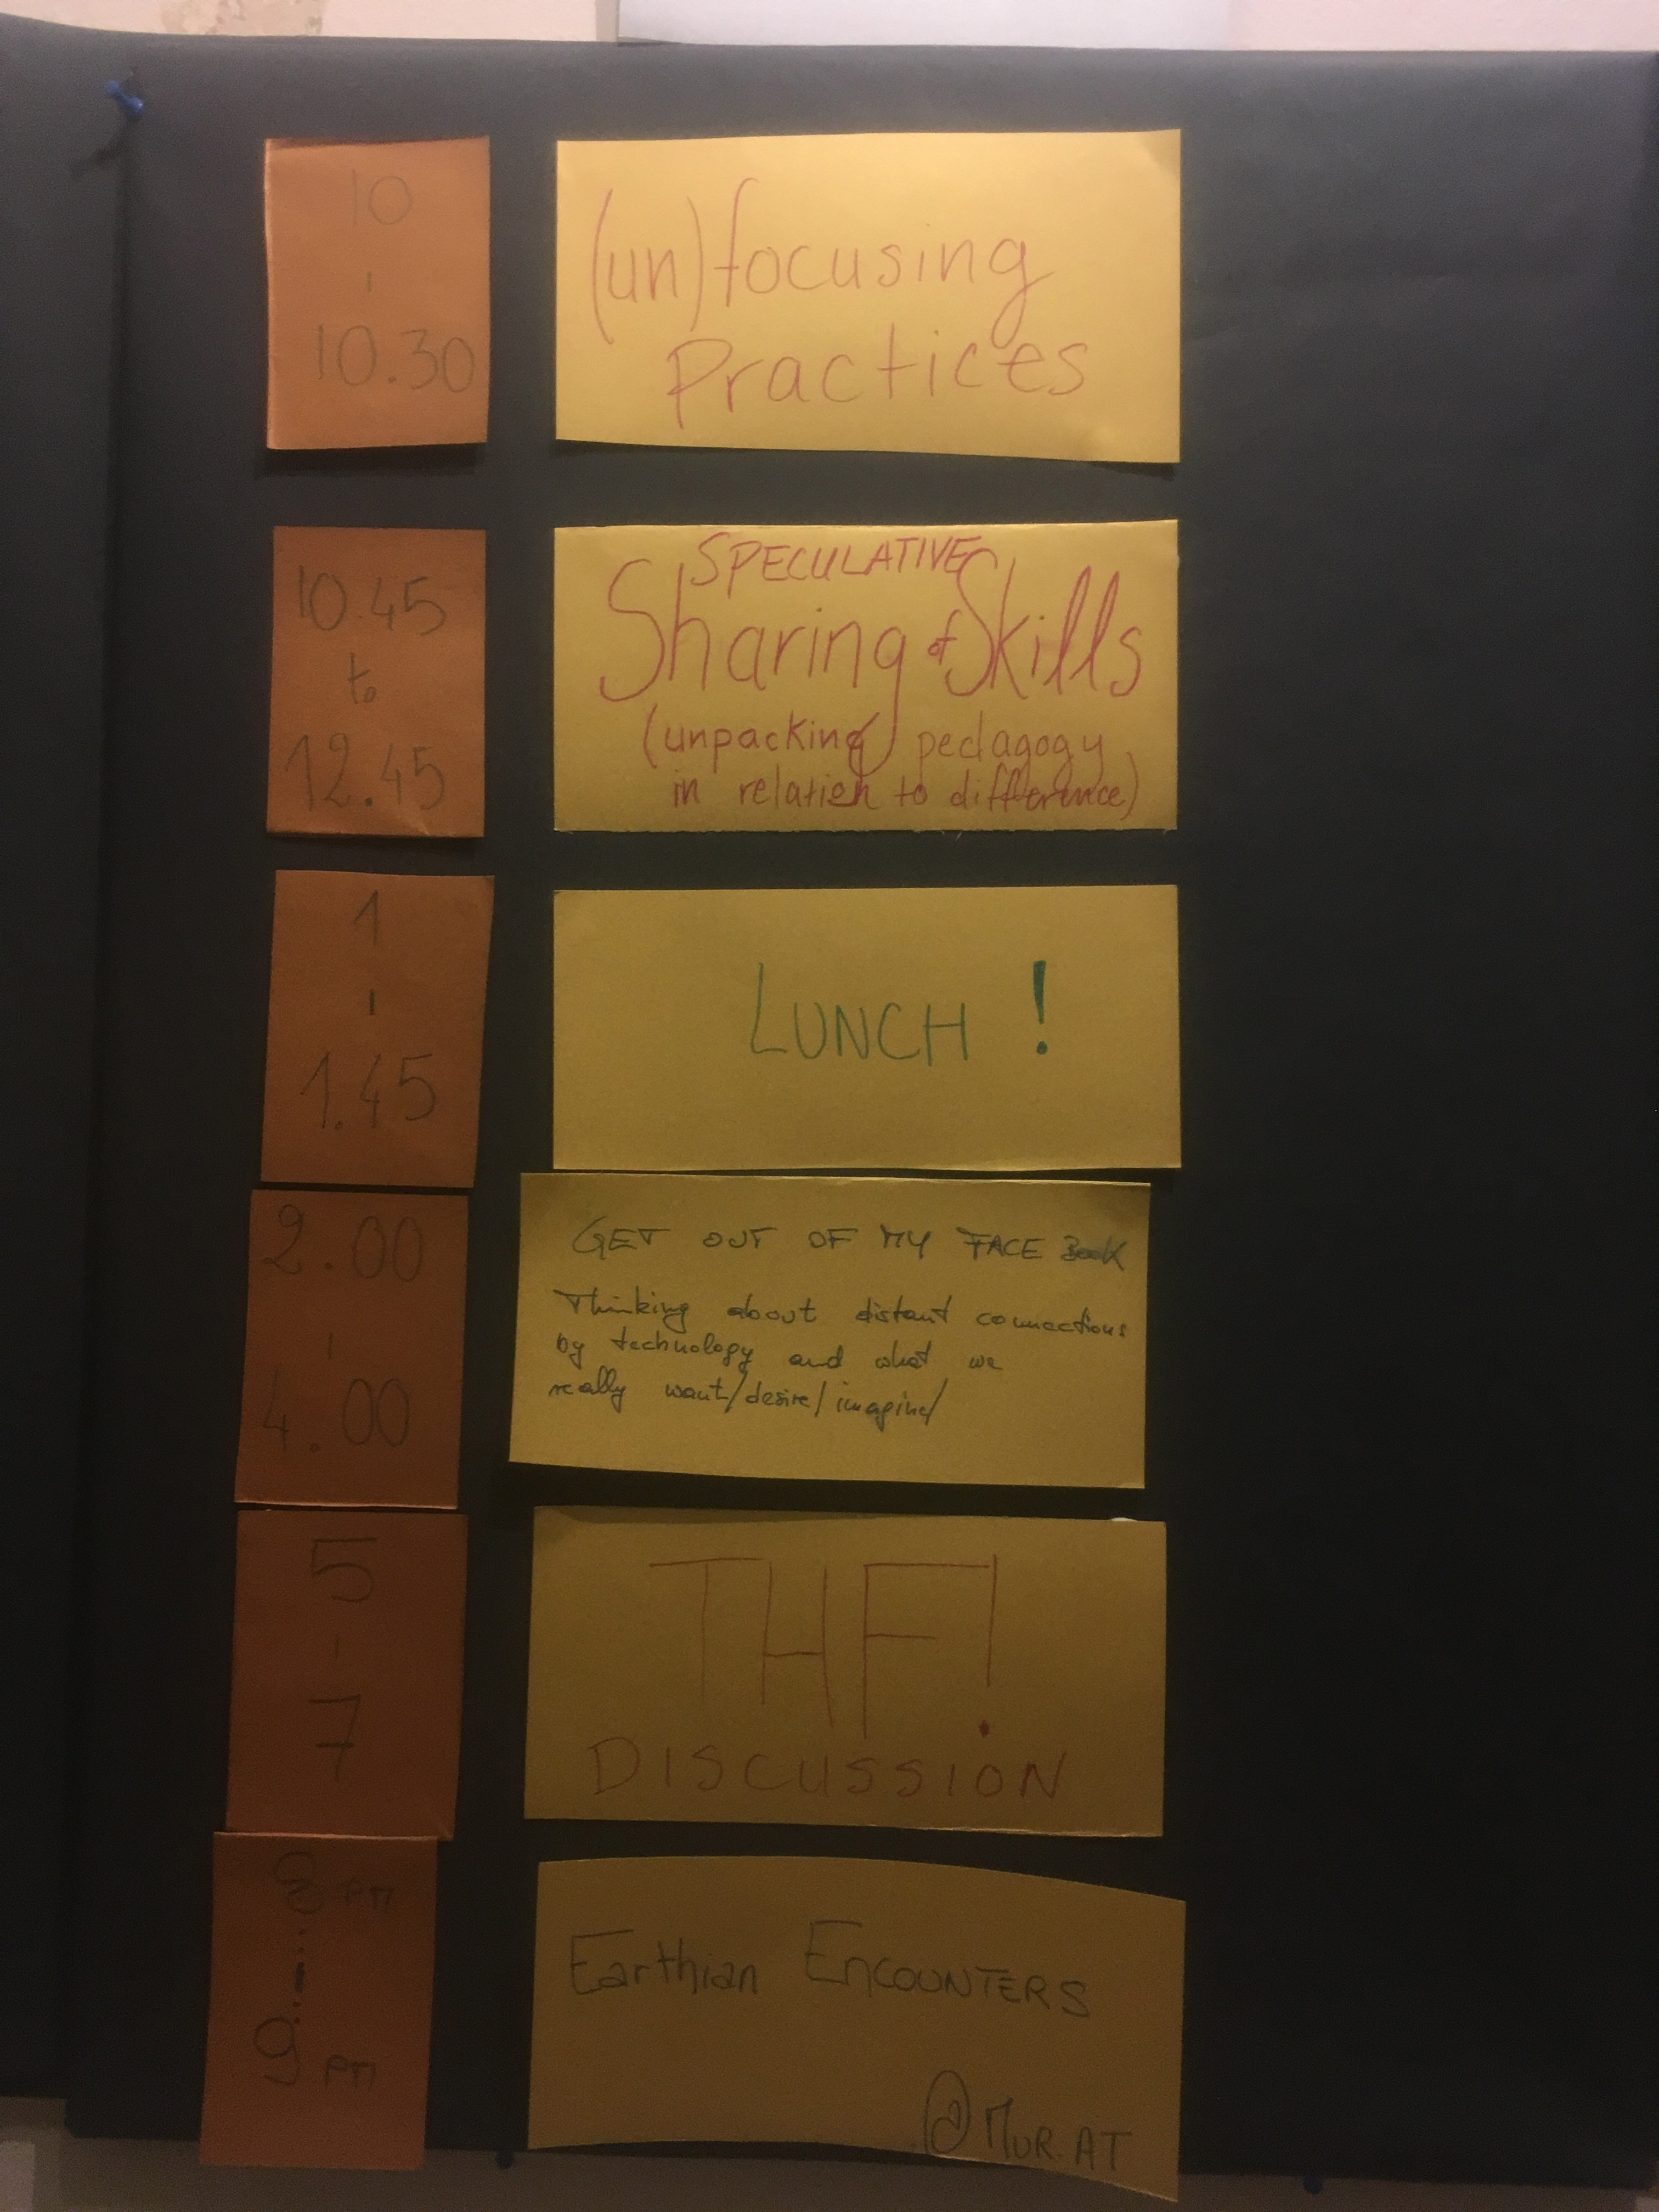 10
-
10.30
(un)focusing
Practices
10.45
to
12.45
SPECULATIVE
Sharing of Skills
(unpacking) pedagogy
in relation to difference)
1
-
1.45
LUNCH !
2.00
-
4.00
GET OUT OF MY FACE Book
Thinking about distant connections
by technology and what we
really want/desire/imagine/
5
-
7
THF!
DISCUSSION
8 PM
9 PM
Earthian ENCOUNTERS
@MUR.AT